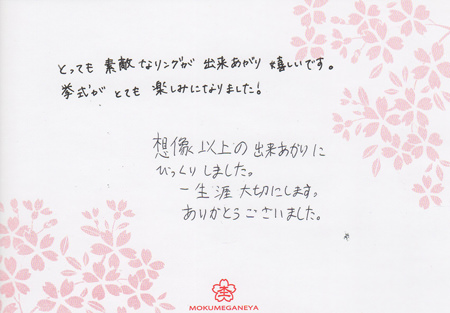 とっても 素敵なリングが 出来あがり 嬉しいです。
挙式がとても 楽しみになりました!
想像以上の出来あがりに
びっくりしました。
一生涯大切にします。
ありがとうございました。
MOKUMEGANEYA